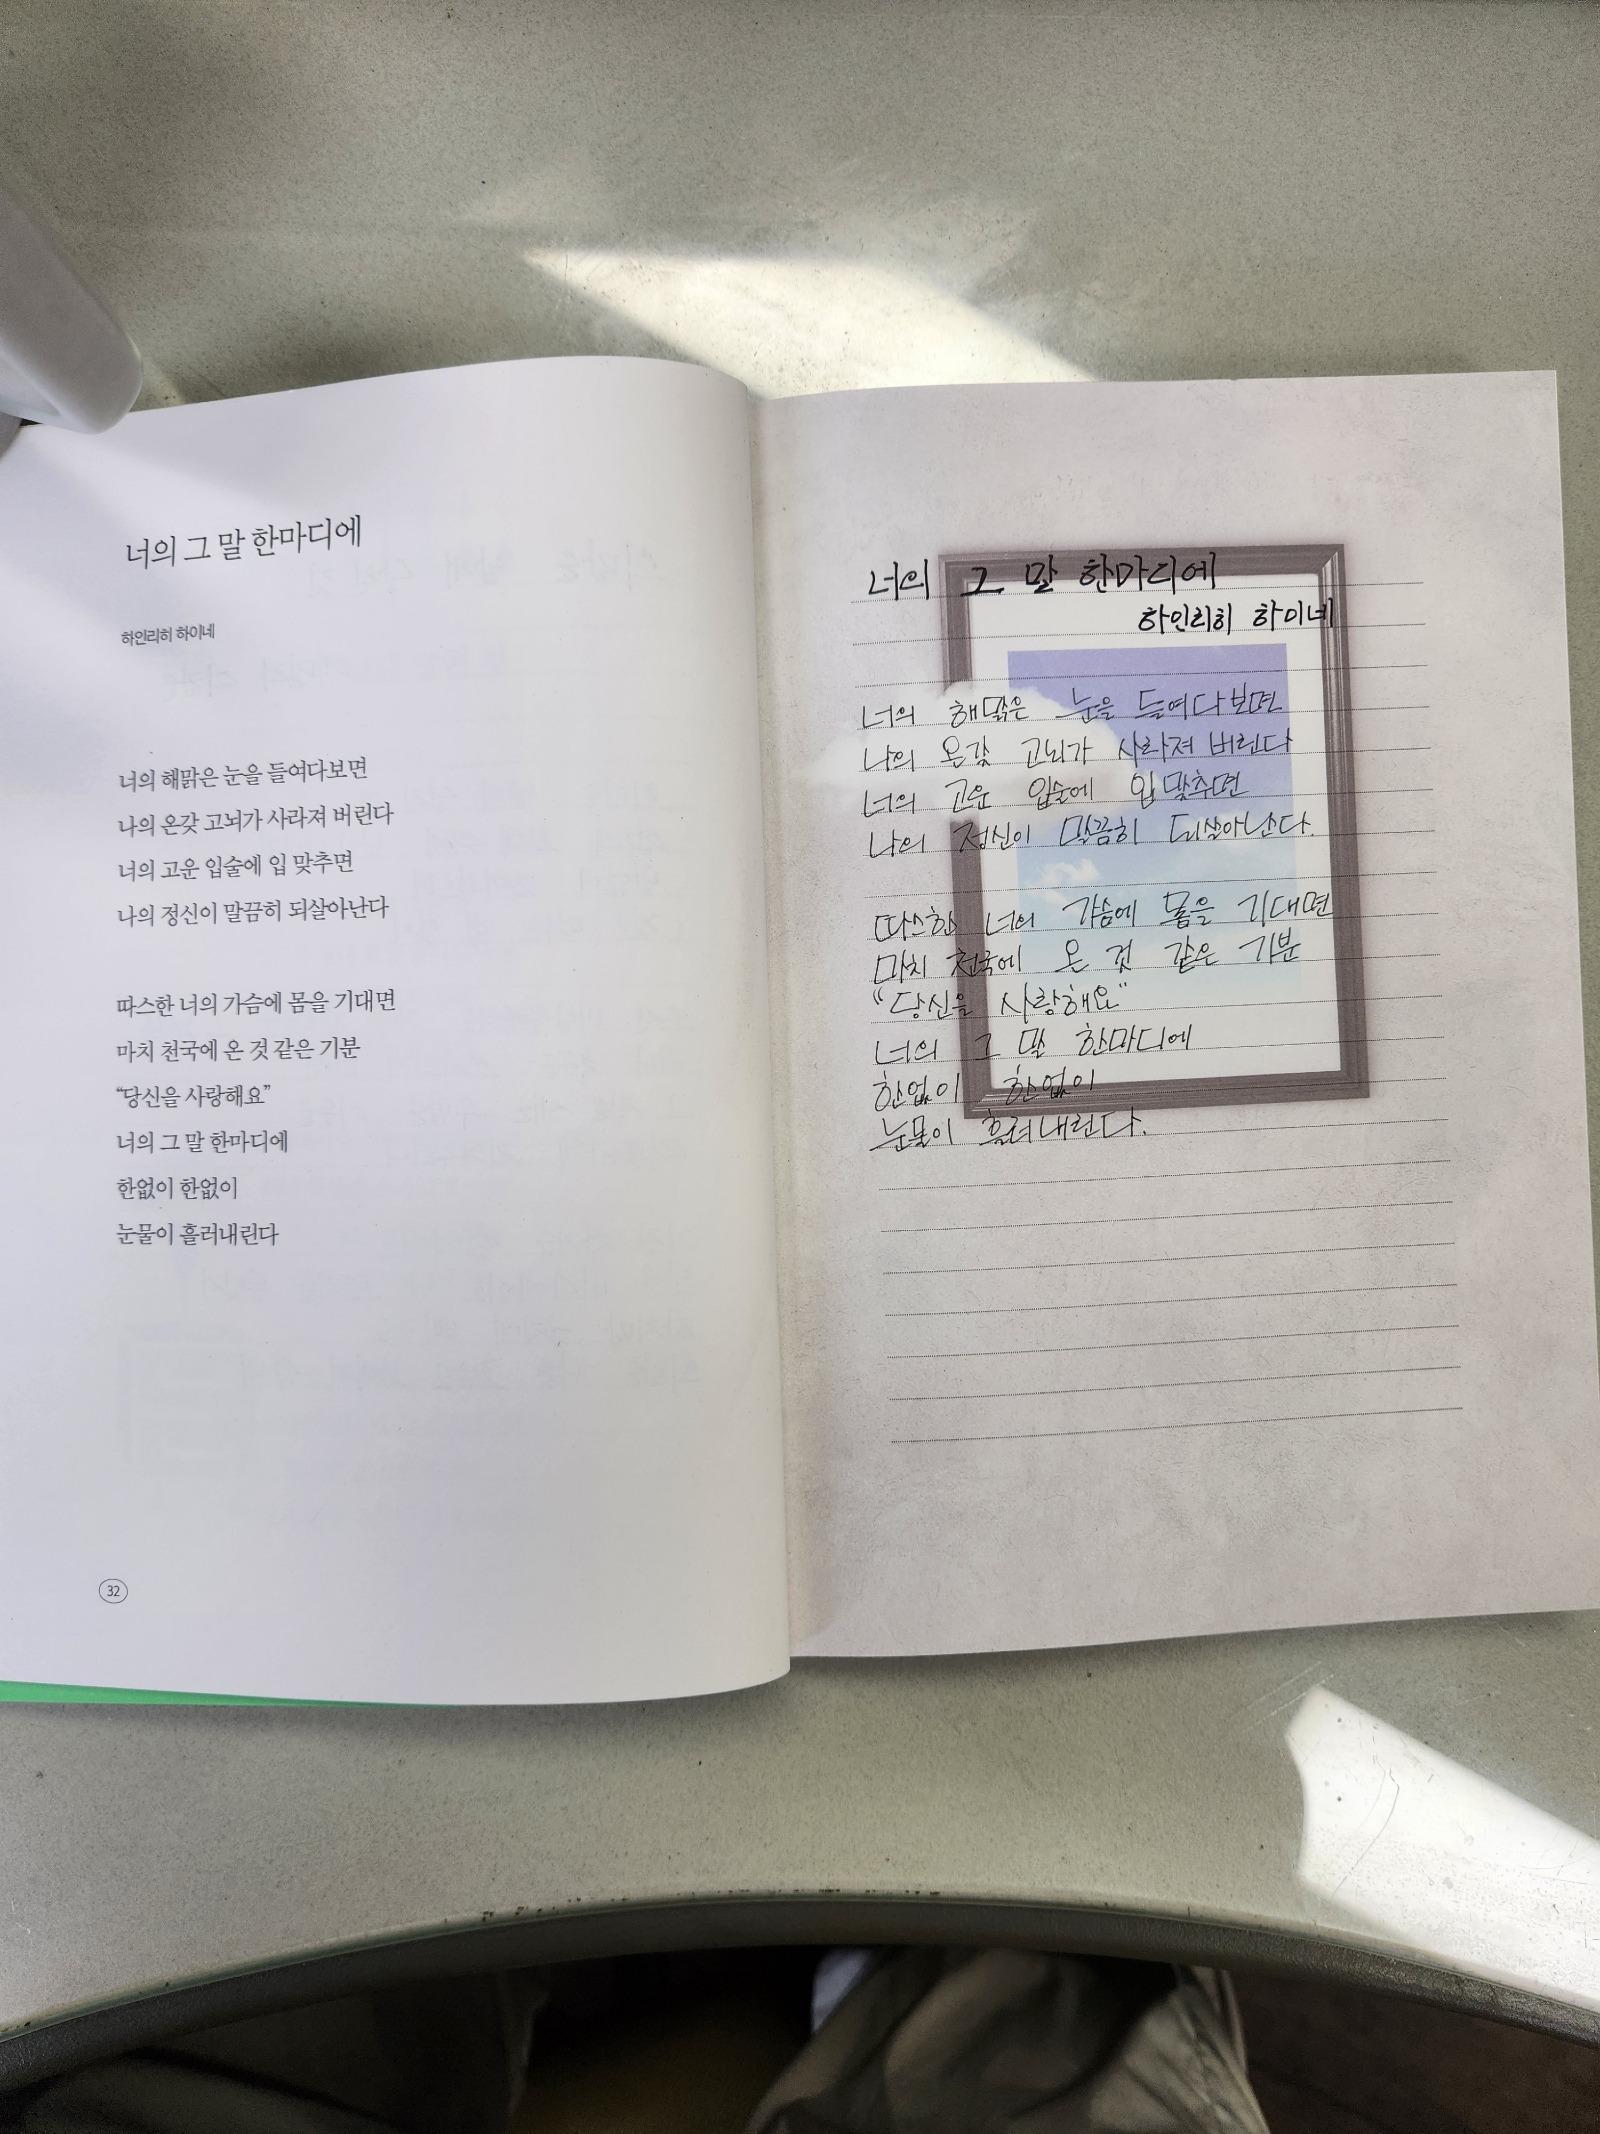 너의 그 말 한마디에
하인리히 하이네
너의 해맑은 눈을 들여다보면
나의 온갖 고뇌가 사라져 버린다
너의 고운 입술에 입 맞추면
나의 정신이 말끔히 되살아난다
따스한 너의 가슴에 몸을 기대면
마치 천국에 온 것 같은 기분
“당신을 사랑해요”
너의 그 말 한마디에
한없이 한없이
눈물이 흘러내린다
32
너의 그 말 한마디에
하인리히 하이네
너의 해맑은 눈을 들여다보면
나의 온갖 고뇌가 사라져 버린다
너의 고운 입술에 입 맞추면
나의 정신이 말끔히 되살아난다.
따스한 너의 가슴에 몸을 기대면
마치 천국에 온 것 같은 기분
“당신을 사랑해요”
너의 그 말 한마디에
한없이 한없이
눈물이 흘러내린다.